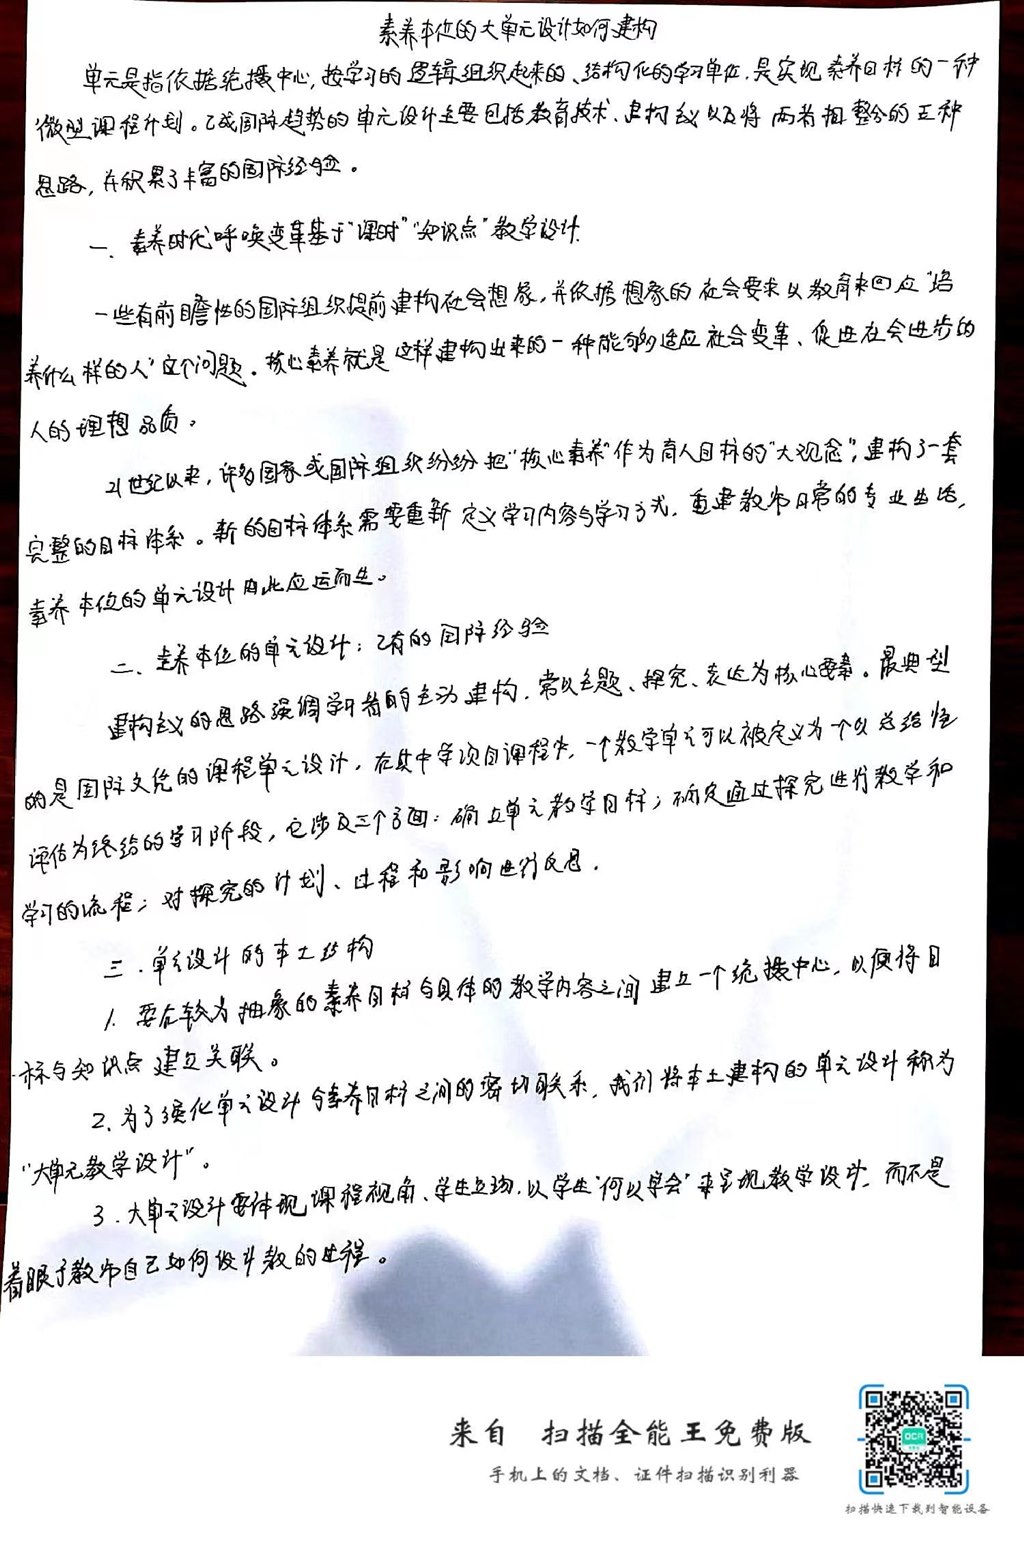 素养本位的大单元设计如何建构
单元是指依据统摄中心,按学习的逻辑组织起来的、结构化的学习单位,是实现素养目标的一种
微型课程计划。已成国际趋势的单元设计主要包括教育技术、建构主义以及将两者相整合的三种
思路,并积累了丰富的国际经验。
一、素养时代呼唤变革基于“课时”“知识点”教学设计
一些有前瞻性的国际组织提前建构社会想象,并依据想象的社会要求以教育来回应“培
养什么样的人”这个问题。核心素养就是这样建构出来的一种能够适应社会变革、促进社会进步的
人的理想品质。
21世纪以来,许多国家或国际组织纷纷把“核心素养”作为育人目标的“大观念”,建构了一套
完整的目标体系。新的目标体系需要重新定义学习内容与学习方式,重建教师日常的专业生活,
素养本位的单元设计由此应运而生。
二、素养本位的单元设计:已有的国际经验
建构主义的思路强调学习者的主动建构,常以主题、探究、表达为核心要素。最典型
的是国际文凭的课程单元设计,在其中学项目课程中,一个教学单元可以被定义为一个以总结性
评估为终结的学习阶段,它涉及三个方面:确立单元教学目标;确定通过探究进行教学和
学习的流程;对探究的计划、过程和影响进行反思.
三.单元设计的本土结构
1.要在较为抽象的素养目标与具体的教学内容之间建立一个统摄中心,以便将目
标与知识点建立关联。
2.为了强化单元设计与素养目标之间的密切联系,我们将本土建构的单元设计称为
“大单元教学设计”。
3.大单元设计要体现课程视角、学生立场,以学生“何以学会”来呈现教学设计,而不是
着眼于教师自己如何设计教的过程。
来自 扫描全能王免费版
手机上的文档、证件扫描识别利器
OCR
扫描快速下载到智能设备